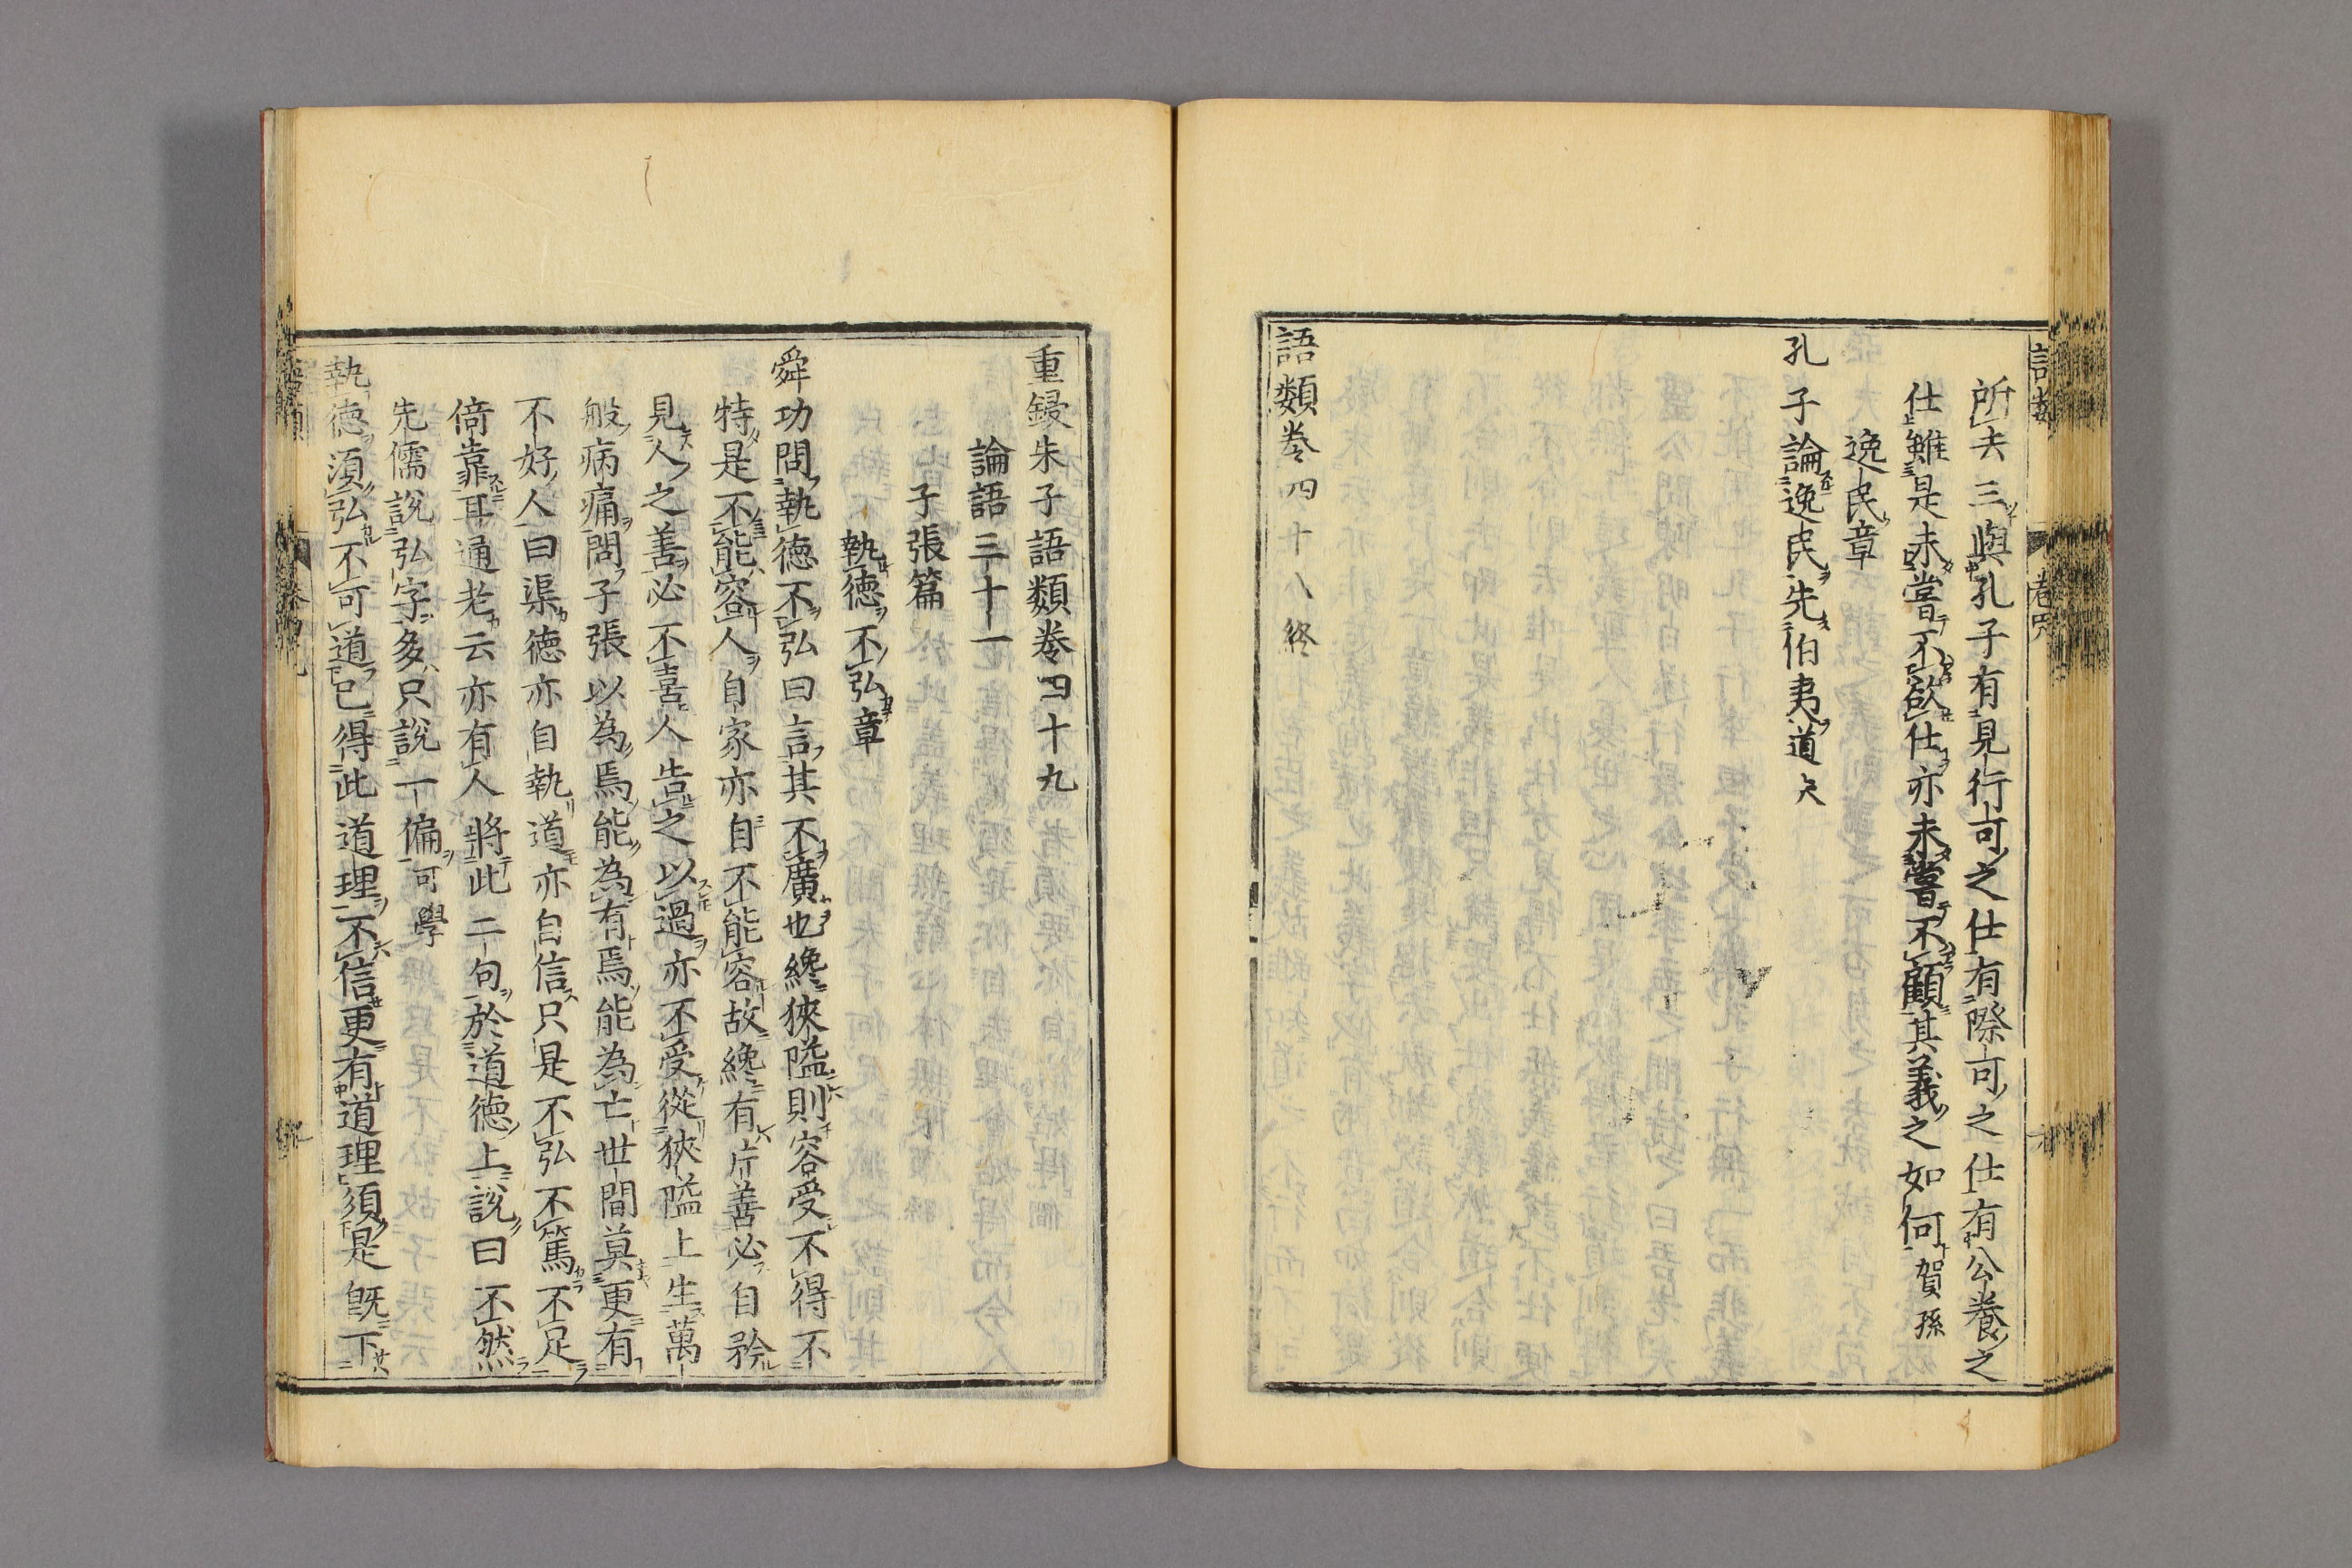 所去三與孔子有見行可之仕有際可之仕有公養之
仕雖是未嘗不欲仕亦未嘗不顧其義之如何賀孫
逸民章
孔子論逸民先伯夷道夫
語類卷四十八終
重鋟朱子語類卷四十九
論語三十一
子張篇
執德不弘章
舜功問執德不弘曰言其不廣也纔狹隘則容受不得不
特是不能容人自家亦自不能容故纔有片善必自矜
見人之善必不喜人告之以過亦不受從狹隘上生萬
般病痛問子張以為焉能為有焉能為亡世間莫更有
不好人曰渠德亦自執道亦自信只是不弘不篤不足
倚靠耳通老云亦有人將此二句於道德上說曰不然
先儒說弘字多只說一偏可學
執德須弘不可道已得此道理不信更有道理須是既下